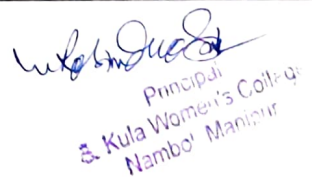 Principal
S. Kula Women's College
Nambol Manipur